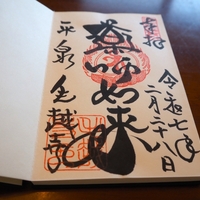 奉拝
令和七年
二月二十八日
薬師如来
平泉
毛越寺